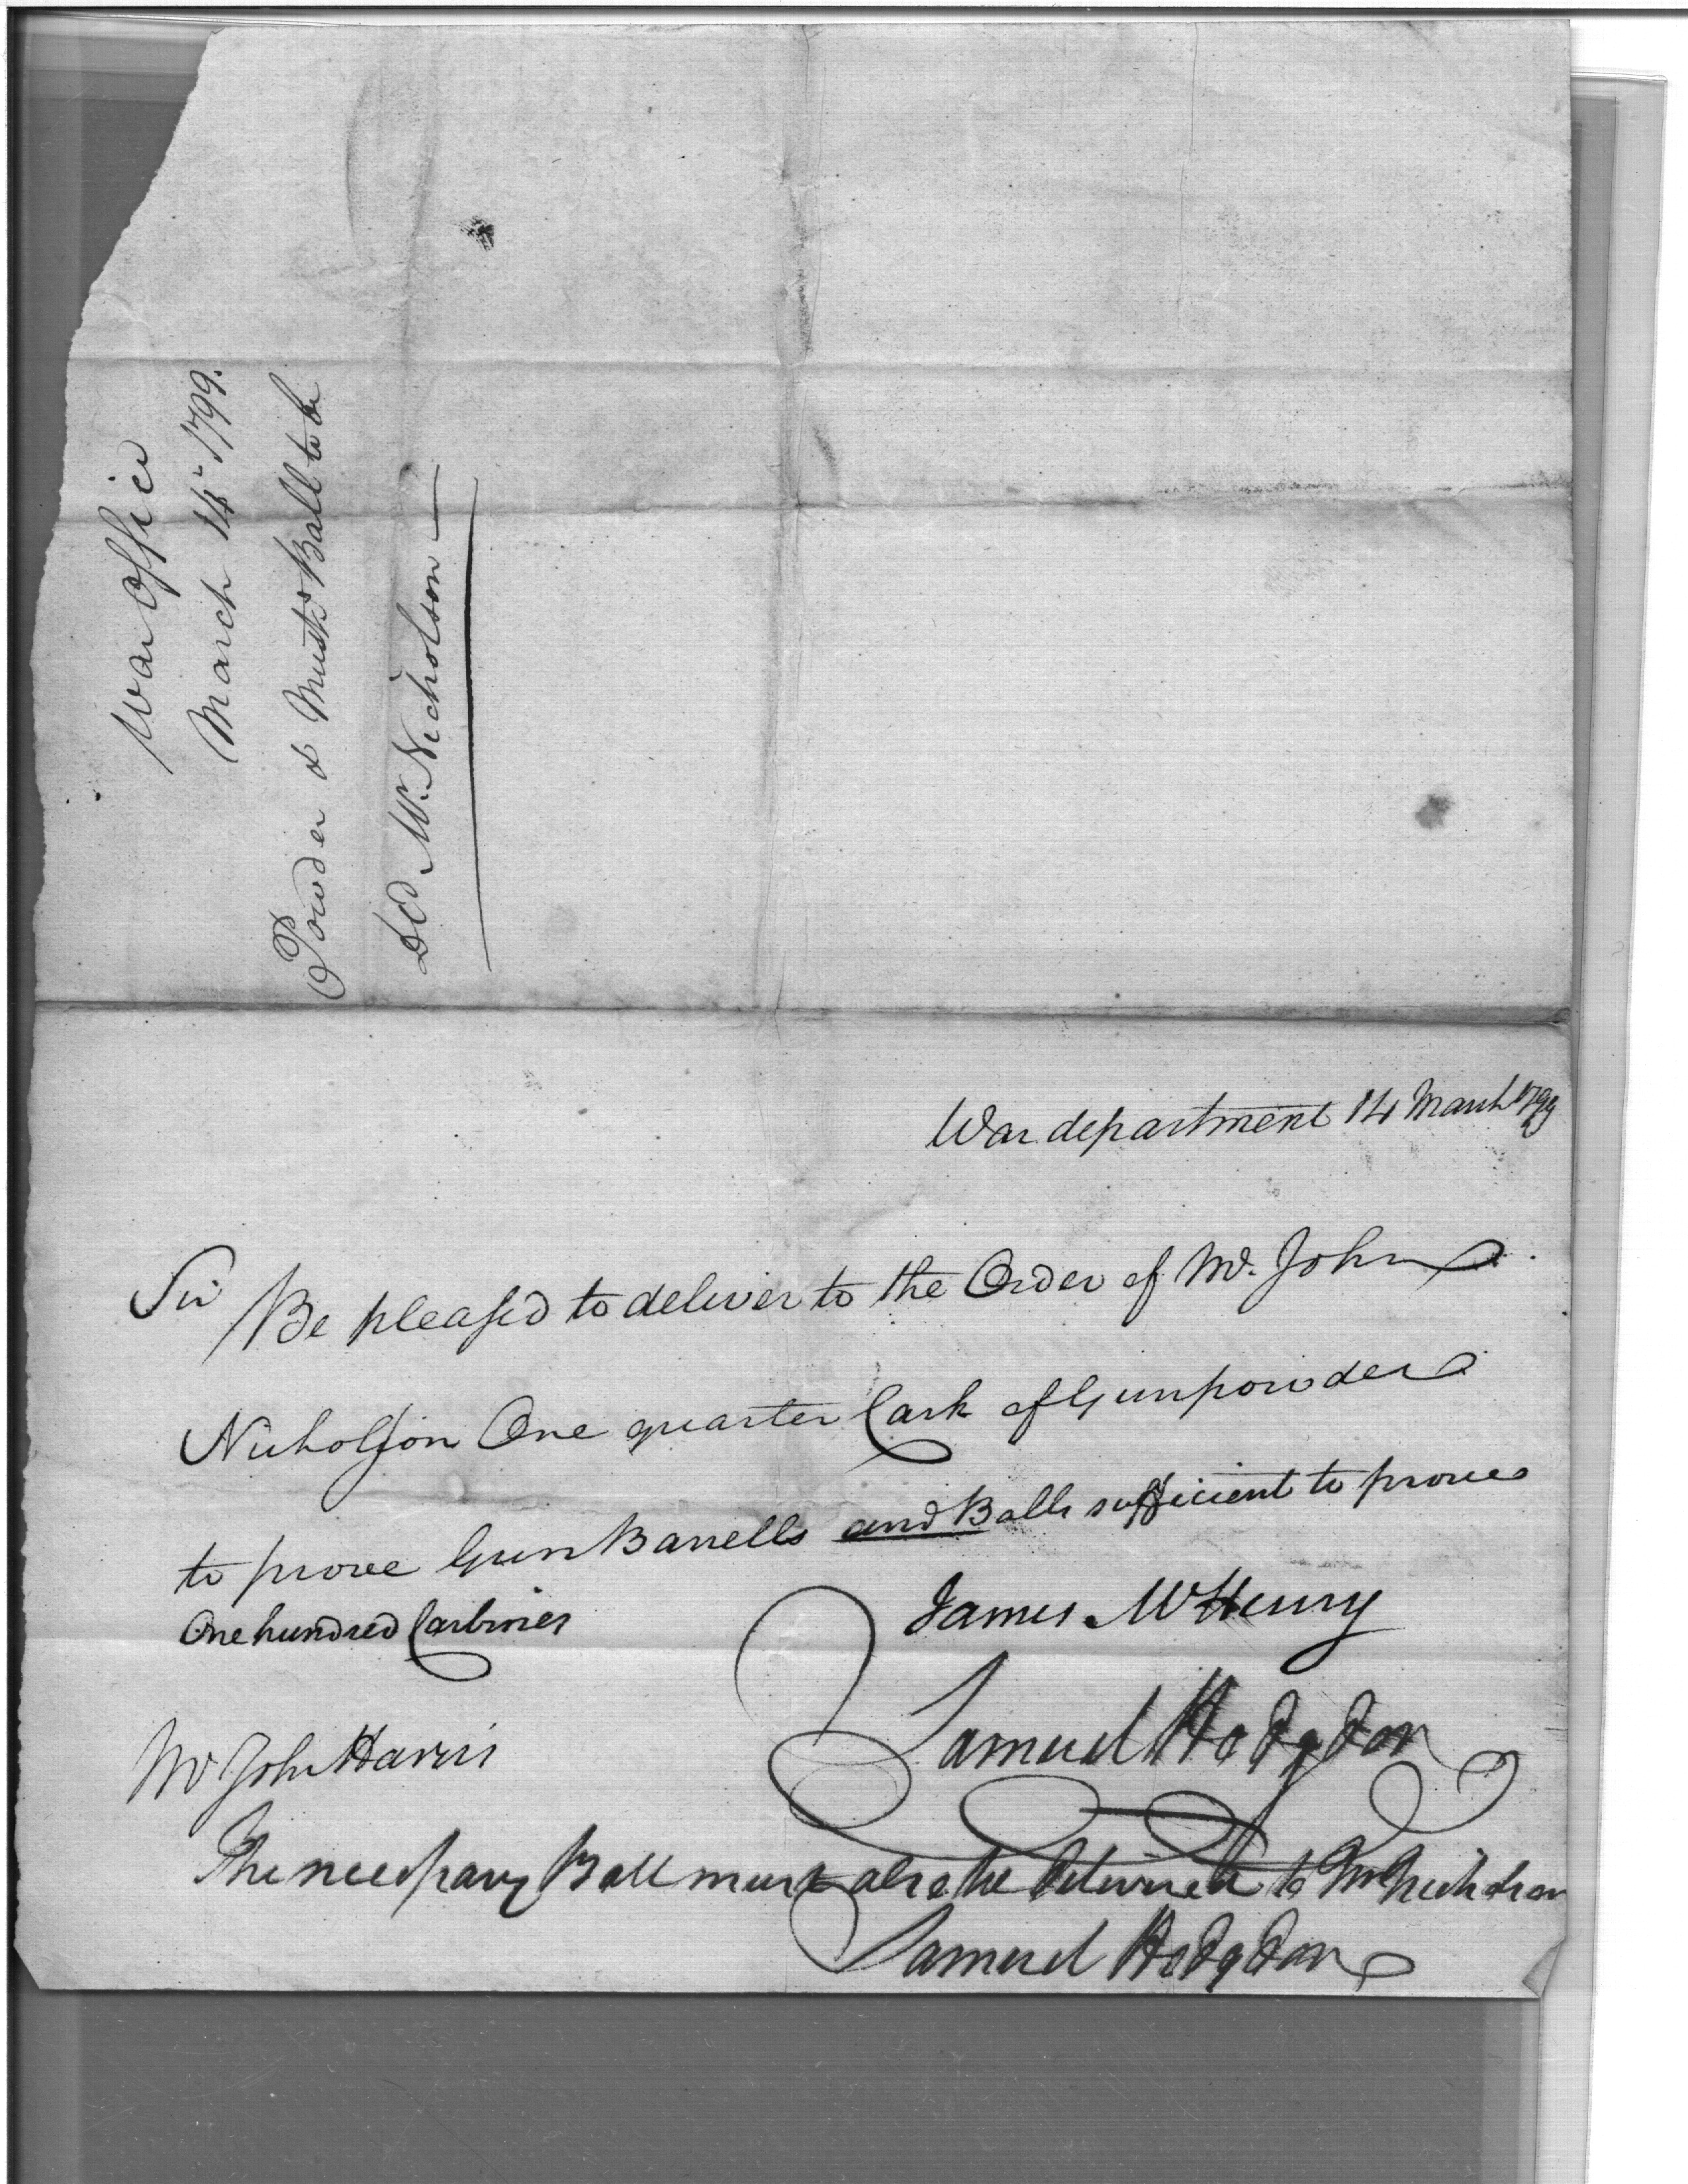 War Office
March 14 1799.
Powder & Musk Ball to be
dd Mr. Nicholson
War department 14 March 1799
Sir
Be pleased to deliver to the Order of Mr. John
Nicholson One quarter Cask of Gunpowder
to prove Gun Barrells and Balls sufficient to prove
One hundred Carbines
James McHenry
Samuel Hodgdon
Mr John Harris
The necessary Ball must also be delivered to Mr Nicholson
Samuel Hodgdon